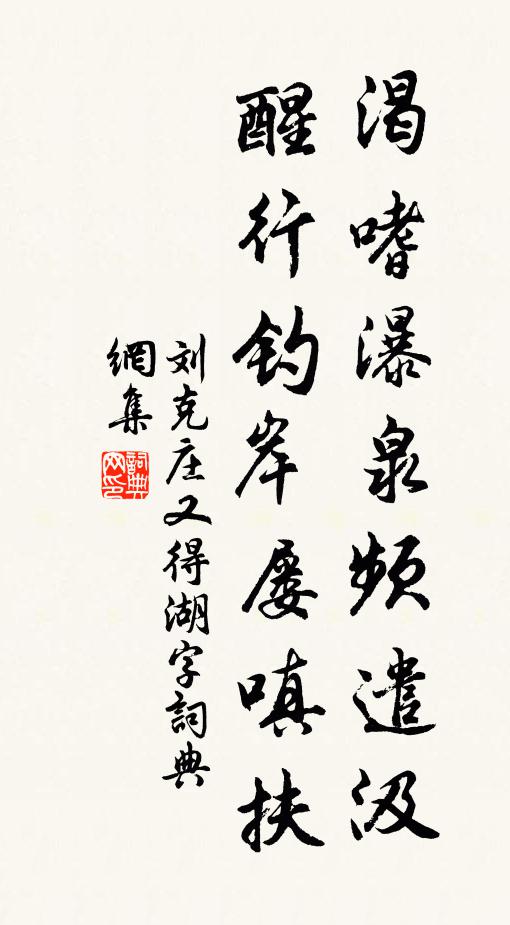 渴嗜瀑泉頻遣汲
醒行钓岸屡嗔扶
刘克庄又得湖字詞典
網集
詞典
网印